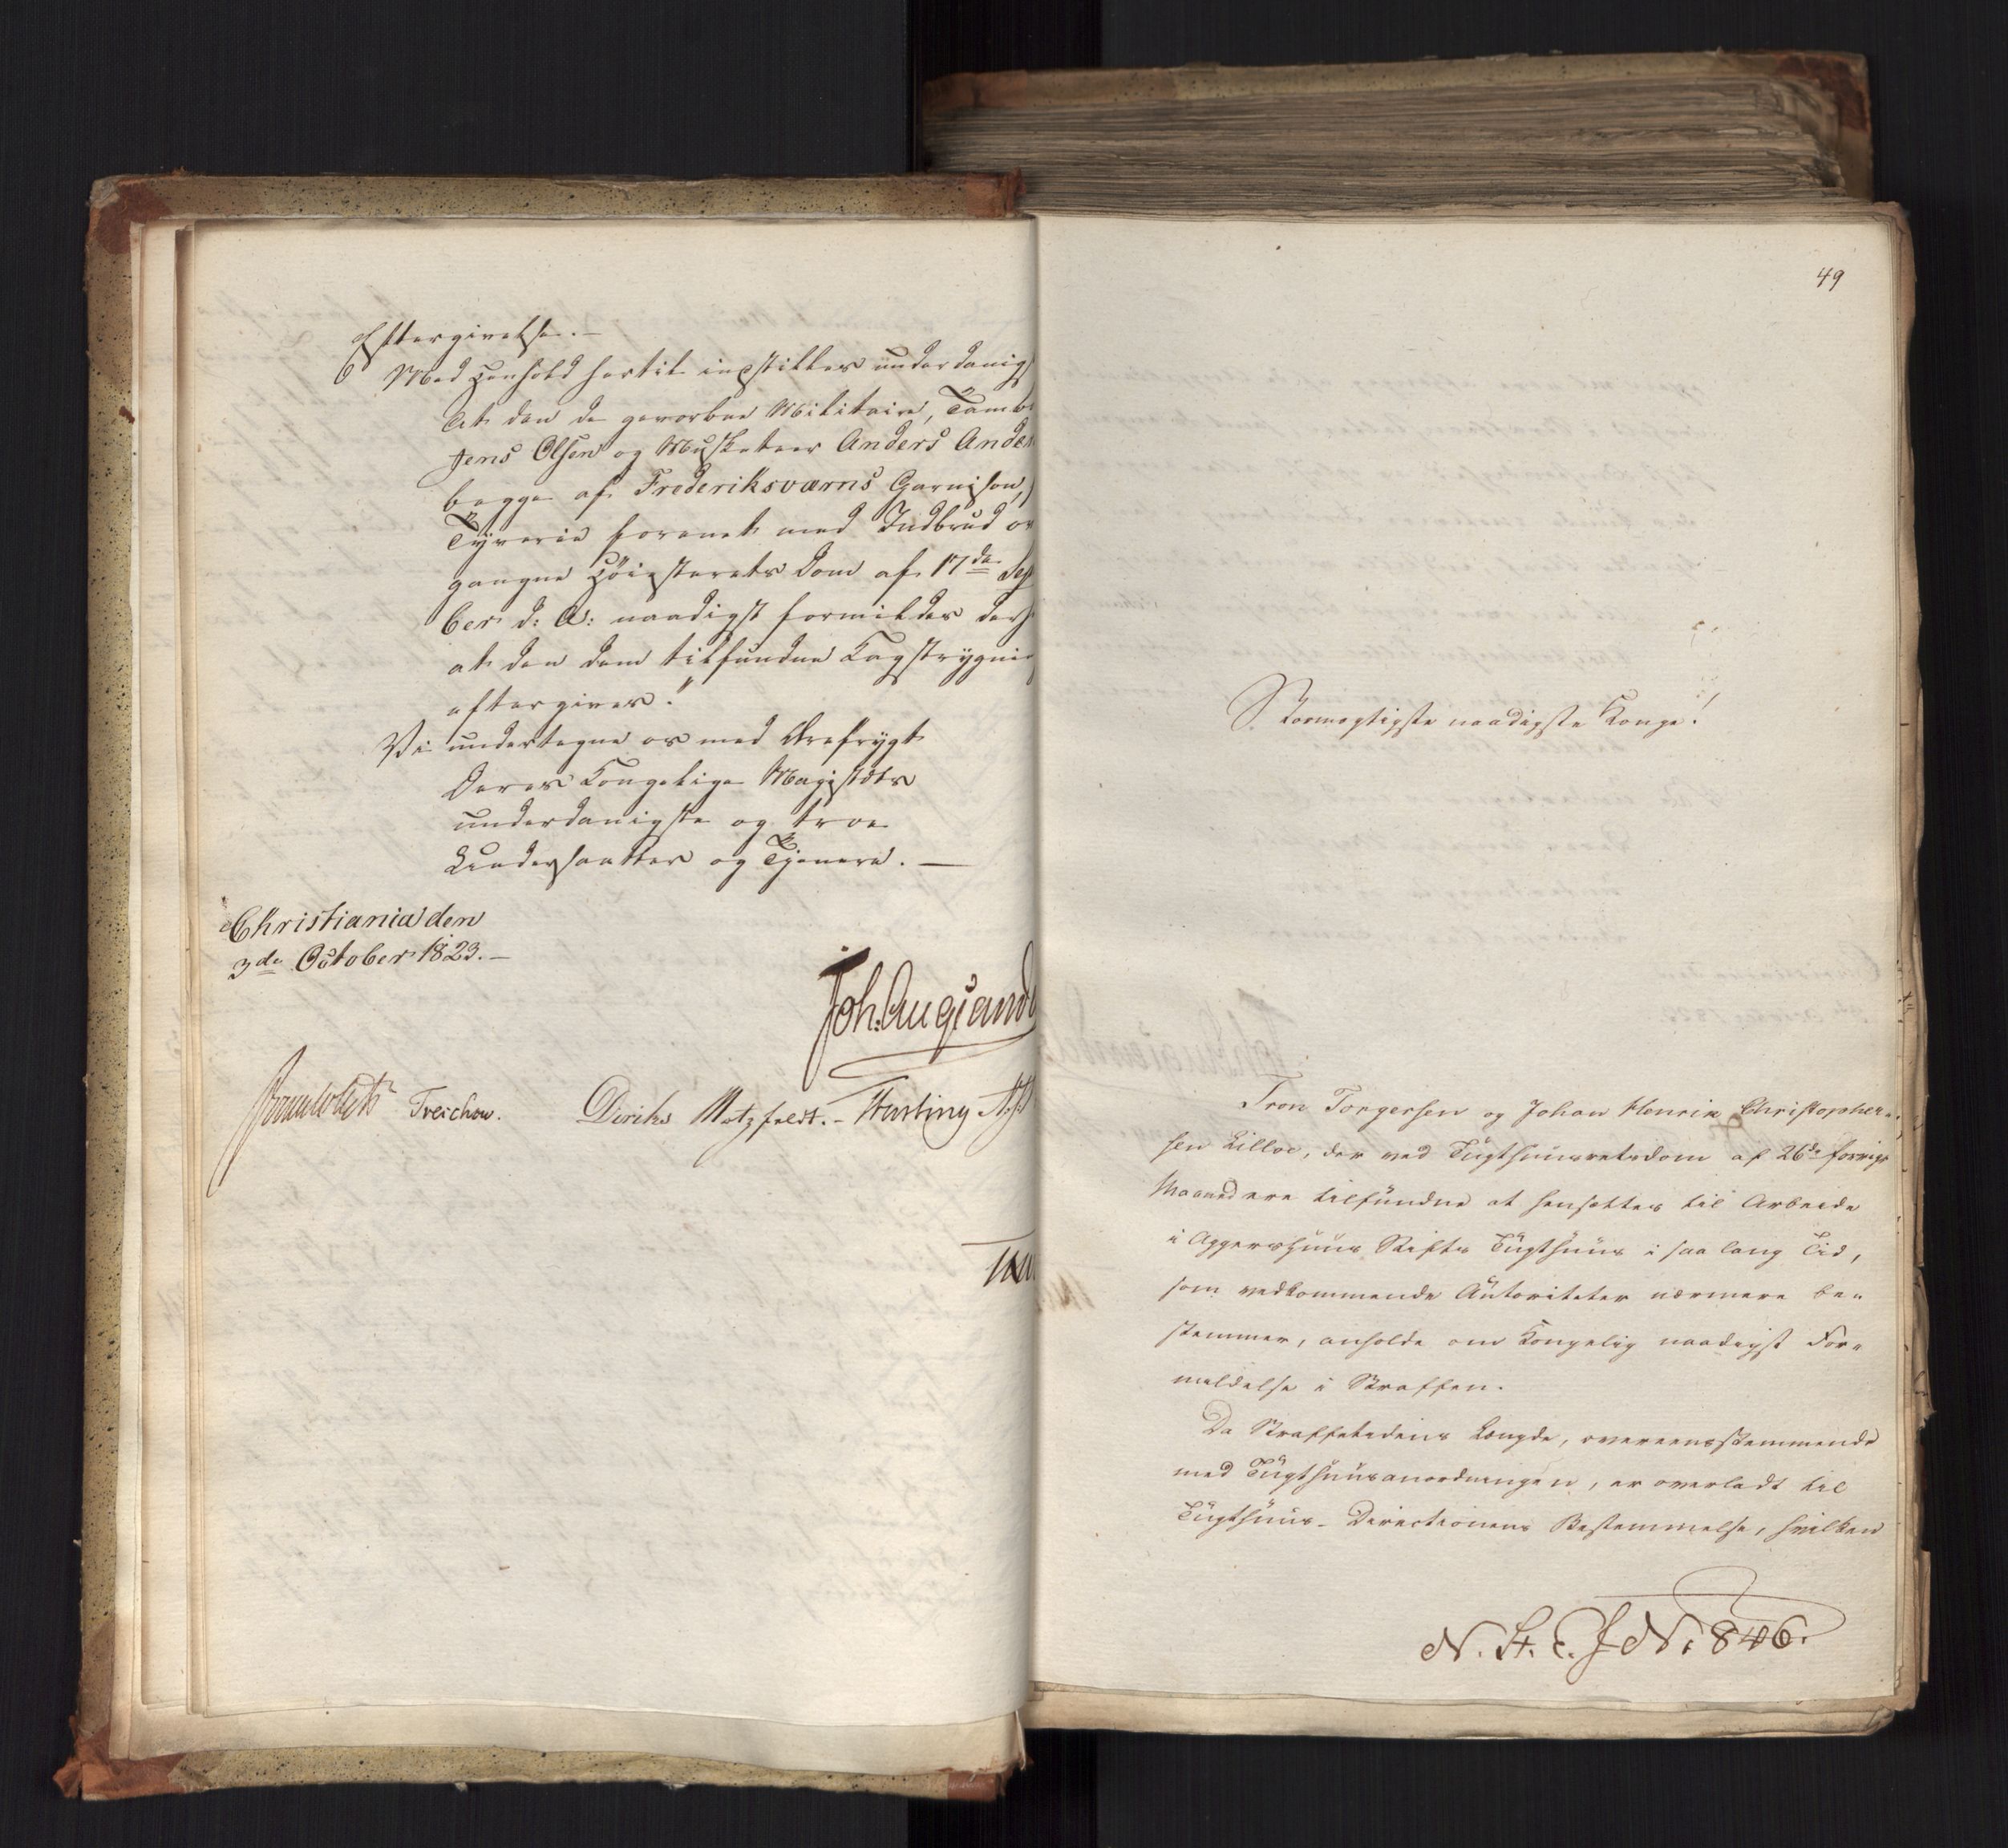 Eftergivelse. —
Med Henhold hertil indstilles underdanigst
At den de gevorbne Militaire, Tamb
Jens Olsen og Musketeer Anders Ander
begge af Frederiksværns Garnison,
Tyverie forenet med Indbrud ov
gangne Høiesterets Dom af 17de Sep
ber d: A: naadigst formildes ders
at den dem tilfundne Kagstrygnin
eftergives."
Vi undertegne os med Ærefrygt
Deres Kongelige Majestæts
underdanigste og troe
Undersaatter og Tjenere. —
Christiania den
3de October 1823. —
Joh: Aug: Sand
Sommerhielm Treschow. Diriks Motzfeldt. - Fasting
49
Stormægtigste naadigste Konge!
Tron Torgersen og Johan Henrik Christopher-
sen Lilloe, der ved Tugthuusretsdom af 26de forrige
Maaned ere tilfundne at hensættes til Arbeide
i Aggershuus Stifts Tugthuus i saa lang Tid,
som vedkommende Autoriteter nærmere be-
stemmer, anholde om Kongelig naadigst For-
mildelse i Straffen.
Da Straffetidens Længde, overeensstemmende
med Tugthuusanordningen, er overladt til
Tugthuus-Directionens Bestemmelse, hvilken
N. St. C. J. N: 846.